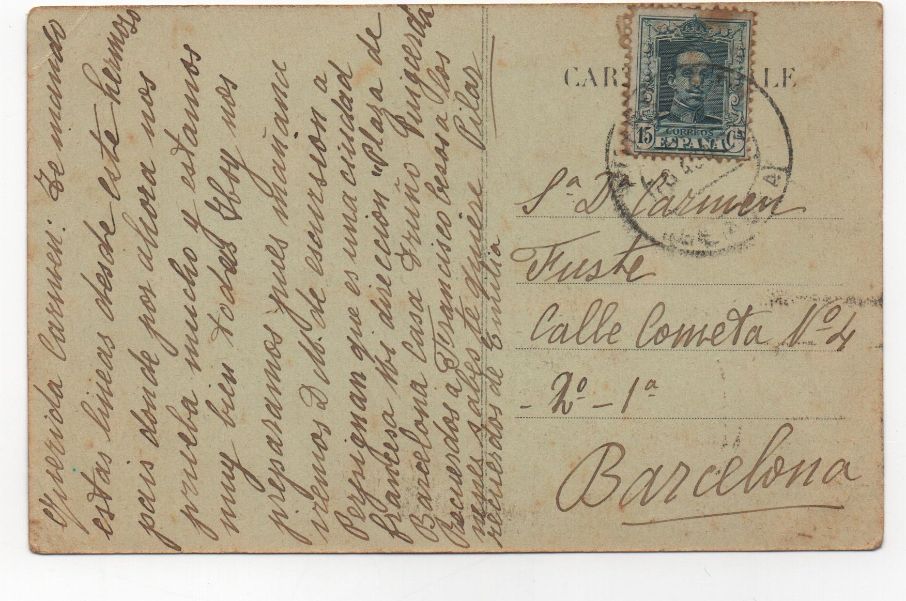 Querida Carmen: Te mando
estas lineas desde este hermoso
pais donde por ahora nos
prueba mucho y estamos
muy bien todas Hoy nos
preparamos pues mañana
iremos D. M. de escursion a
Perpignan que es una ciudad
francesa Mi direccion "Plaza de
Barcelona Casa Truño Puigcerdá
Recuerdos a Francisco besos a los
nenes sabes te quiere Pilar
recuerdos de Emilia
CAR ALE
15 CORREOS Cs
ESPAÑA
Sª Dª Carmen
Fusté
Calle Cometa Nº 4
- 2º - 1ª
Barcelona